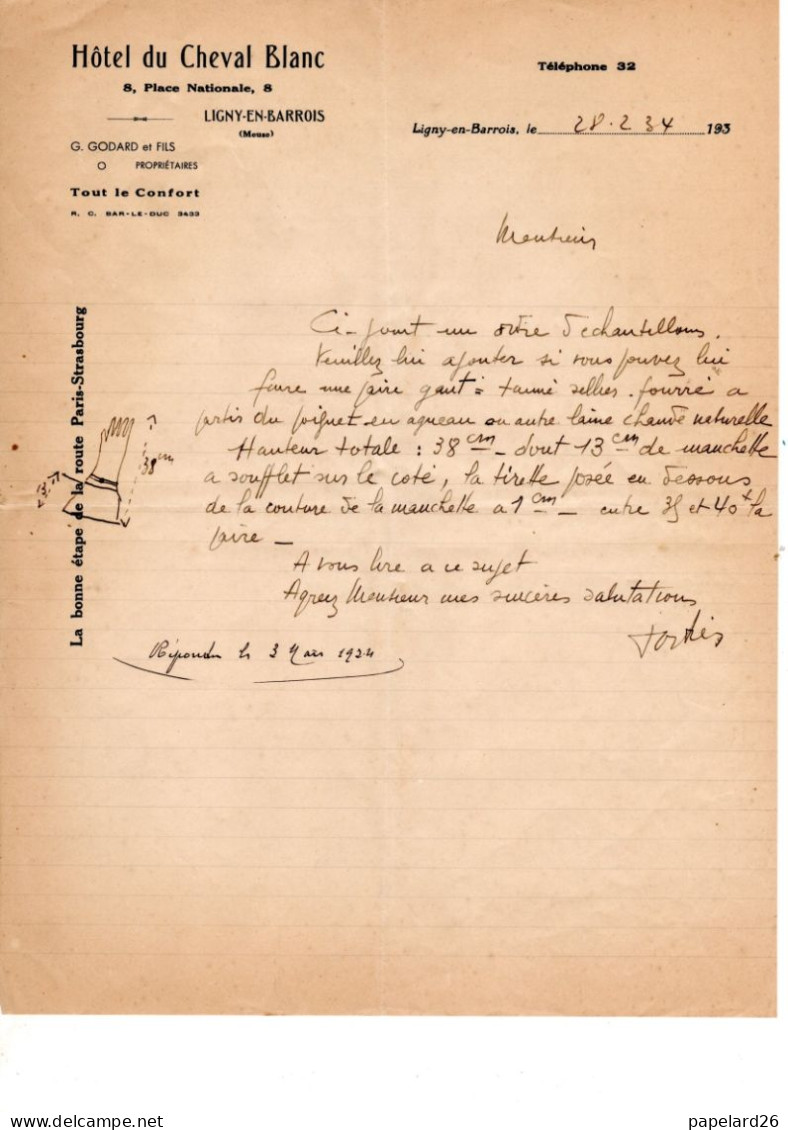 Hôtel du Cheval Blanc
8, Place Nationale, 8
LIGNY-EN-BARROIS
(Meuse)
G. GODARD et FILS
PROPRIÉTAIRES
Tout le Confort
R. C. BAR-LE-DUC 3433
Téléphone 32
Ligny-en-Barrois, le 28.2 34 193
Monsieur
Ci-joint un ordre d'échantillons.
Veuillez lui ajouter si vous pouvez lui
faire une paire gant = tanné selles. fourré a
partir du poignet en agneau ou autre laine chaude naturelle
Hauteur totale : 38 cm - dont 13 cm de manchette
a soufflet sur le coté, la tirette posée en dessous
de la couture de la manchette a 1 cm - entre 35 et 40 la
paire -
A vous lire a ce sujet
Agréez Monsieur mes sincères salutations
Répondu le 3 Mars 1934
La bonne étape de la route Paris-Strasbourg
38 cm
13
delcampe.net
papelard26